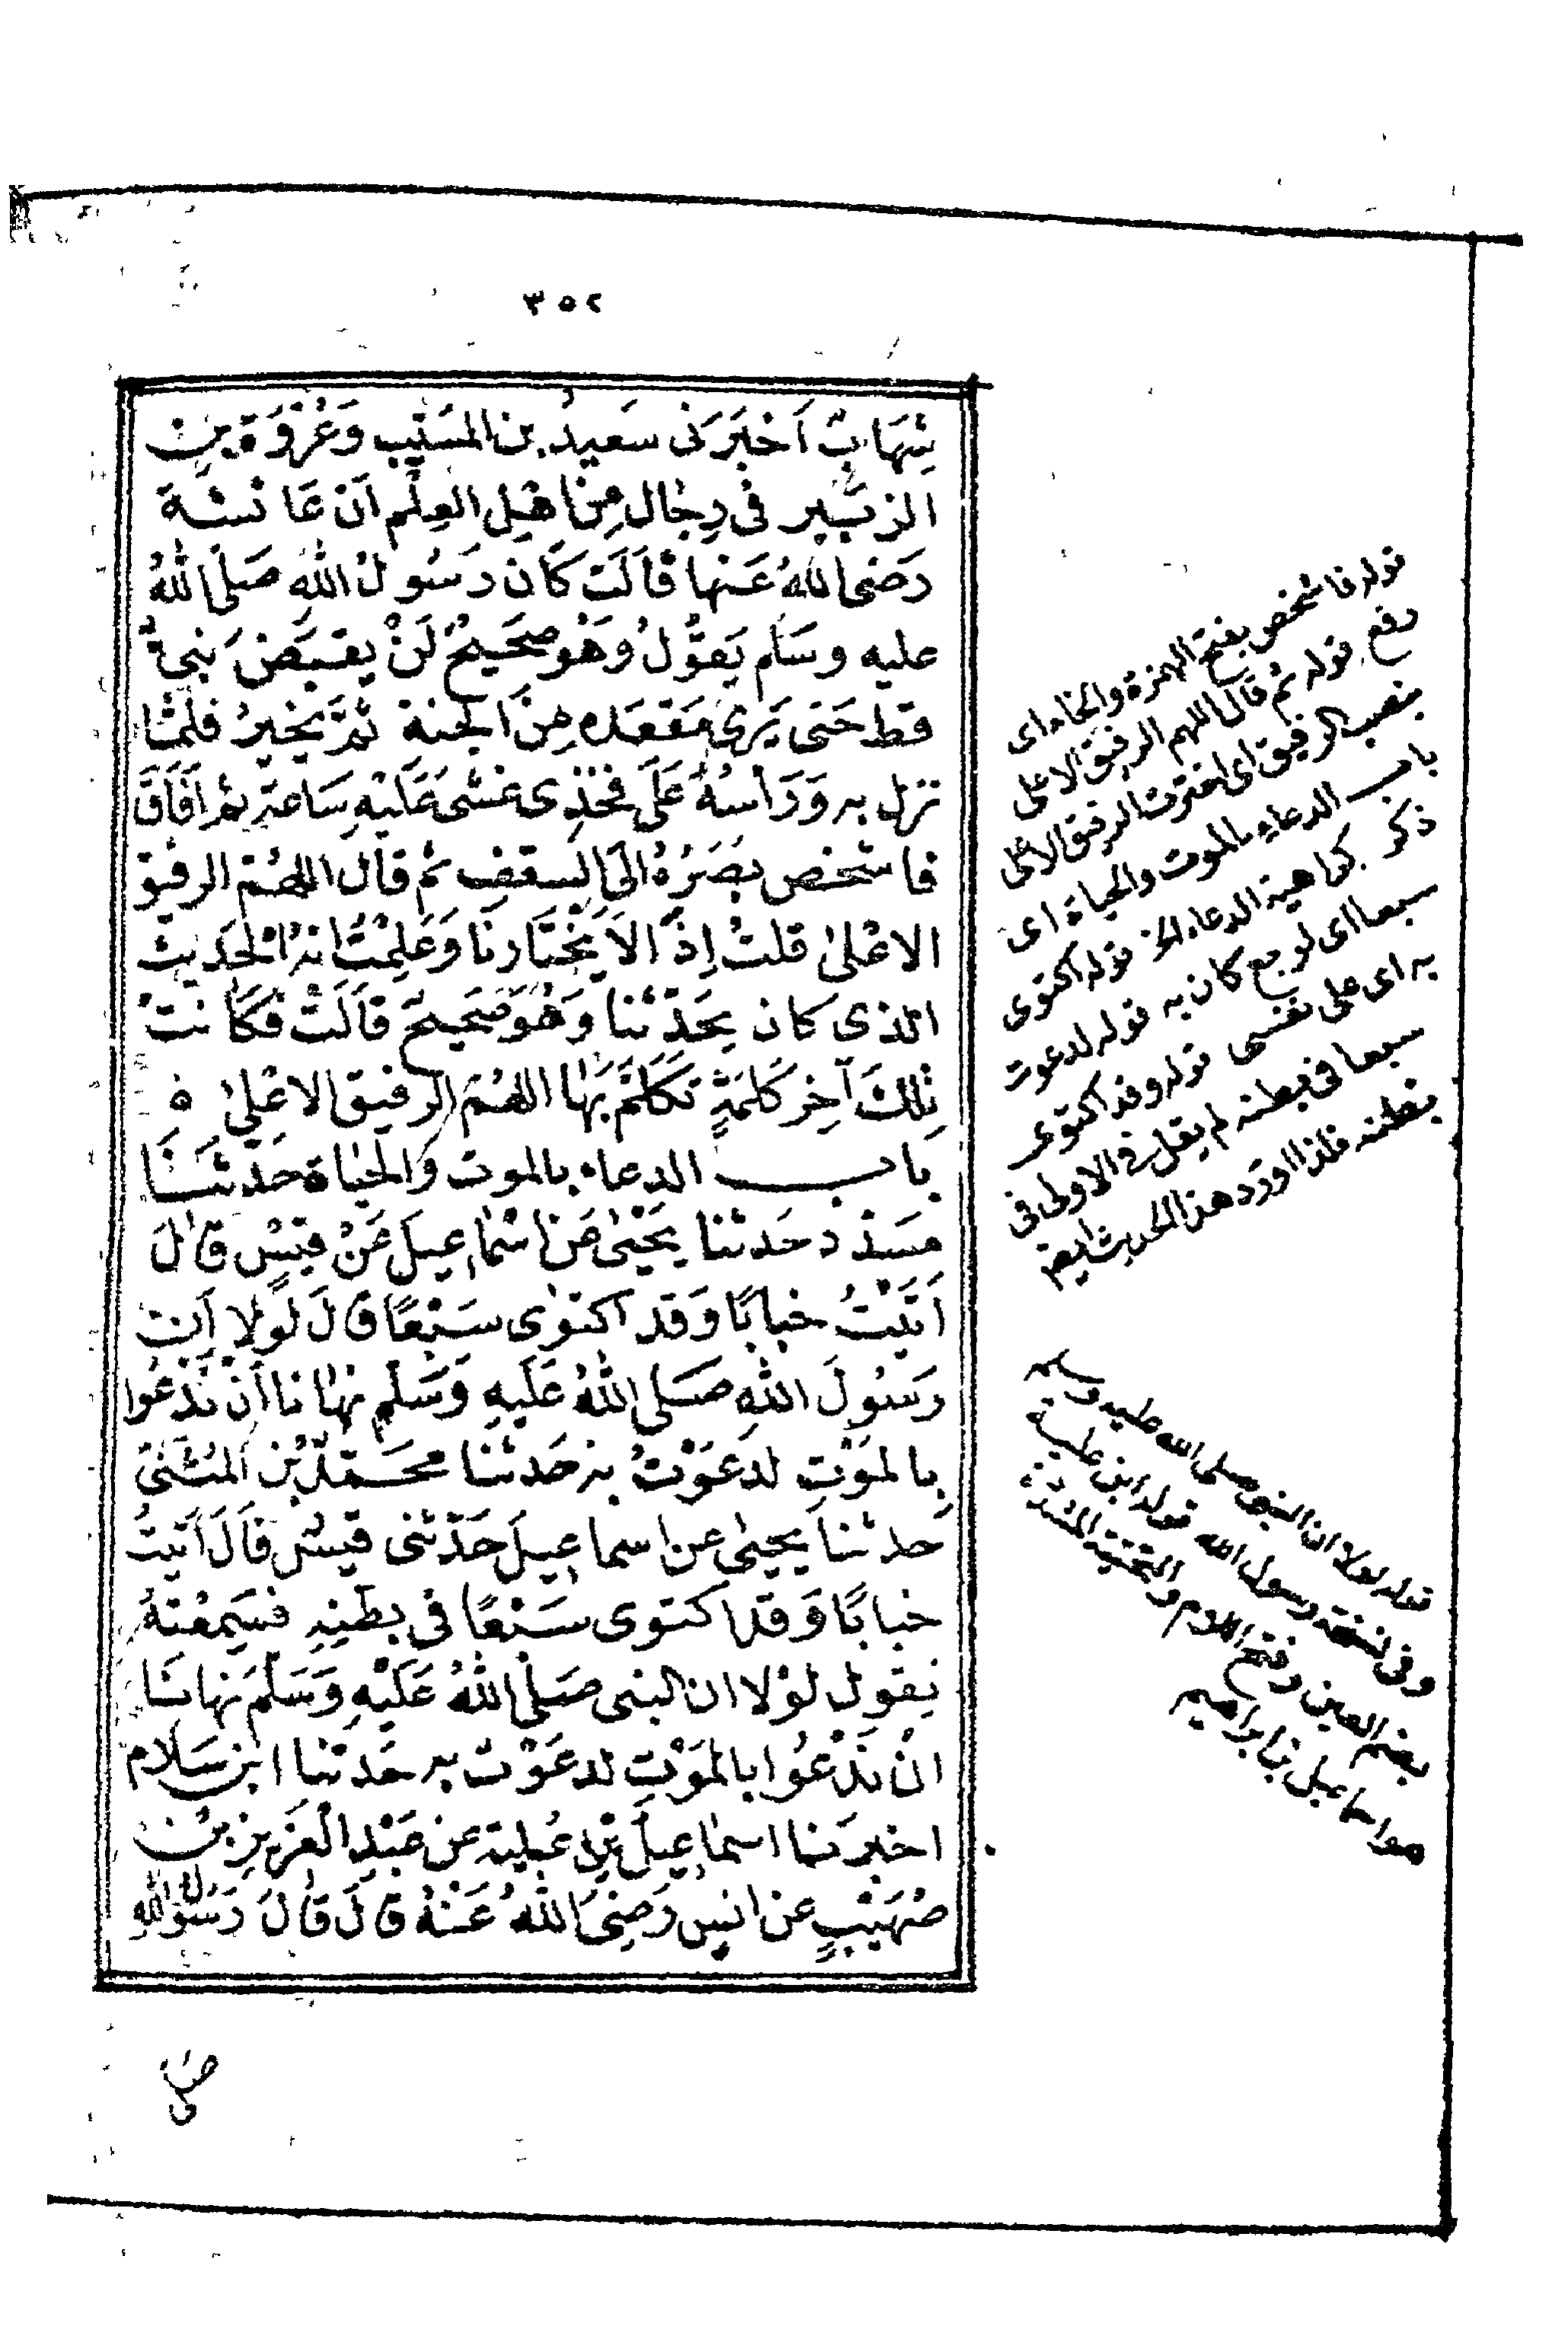 ٣٥٢
شِهَابٍ اَخْبَرَنى سَعيدُ بن المسَيّب وَعُرْوَة بن
الزبَّير فى رِجالٍ مِن اهْلِ العِلْم اَنّ عَائشَةَ
رَضىَ اللهُ عَنها قَالَت كَان رَسُولُ اللهِ صَلى اللهُ
عليه وسَلم يَقوُلُ وَهْوَ صَحيحٌ لَنْ يقبَضَ نبىٌّ
قط حَتى يَرى مَقعَده مِنَ الجنة ثمَّ يخَيرُ فلمّا
نزل به وَرَأسُهُ عَلَى فَخذِى غشى عَلَيْهِ سَاعة ثم اَفَاقَ
فاشخص بَصَرُهُ الَى السقفِ ثم قال اللهُمّ الرفيق
الاعْلىٰ قلتُ اِذًا لاَ يَخْتَارنَا وَعَلِمْتُ انهُ الْحَديث
الذى كان يحَدّثنا وَهُوَ صَحِيحٌ قَالَتْ فكَانتْ
تِلكَ آخِر كَلمَةٍ تكَلَّمَ بهَا اللهُمَّ الرفيق الاعْلىٰ ه
باب الدعاء بالموت وَالحيَاة حَدثنَا
مسَدّد حَدثنا يَحْيىٰ عَن اسْمٰاعيلَ عَنْ قيسٍ قٰالَ
اَتَيْتُ خبابًا وَقد اكتوٰى سَبْعًا قَالَ لولا اَن
رَسُولَ اللهِ صَلى اللهُ عَلَيهِ وَسَلّم نهٰانا اَنْ نَدْعُوا
بالموَْتِ لدعَوْتُ به حَدثنا محمَّد بْن المثنىٰ
حَدثنا يحيىٰ عن اسماعيلَ حَدّثنى قيسٌ قَالَ اَتيتُ
خبابًا وَقد اكتوى سَبْعًا فى بطنِهِ فسَمِعْتهُ
يَقول لوْلا ان النبى صَلى اللهُ عَلَيْهِ وَسَلَّمَ نهانَا
انْ نَدْعُوا بالموَْتِ لدعَوْت به حَدثنا ابن سَلام
اخبرَنا اسمٰاعيلَ بْن عُلية عن عَبْدِ الْعَزيزِ بْن
صُهَيْبٍ عن انسٍ رَضِىَ اللهُ عَنْهُ قالَ قٰالَ رَسُولُ اللهِ
قوله فاشخص بفتح الهمزة والخاء اى
رفع قوله ثم قال اللهم الرفيق الاعلى
بنصب الرفيق اى اخترت الرفيق الاعلى
باب الدعاء بالموت والحياة اى
ذكر كراهية الدعاء الخ قوله اكتوى
سبعا اى لوجع كان به قوله لدعوت
به اى على نفسى قوله وقد اكتوى
سبعا فى بطنه لم يقل فى الاولى فى
بطنه فلذا اورد هذا الحديث ايضا
قوله لولا ان النبى صلى الله عليه وسلم
وفى نسخة رسول الله قوله ابن علية
بضم العين وفتح اللام والتحتية المشددة
هو اسماعيل بن ابراهيم